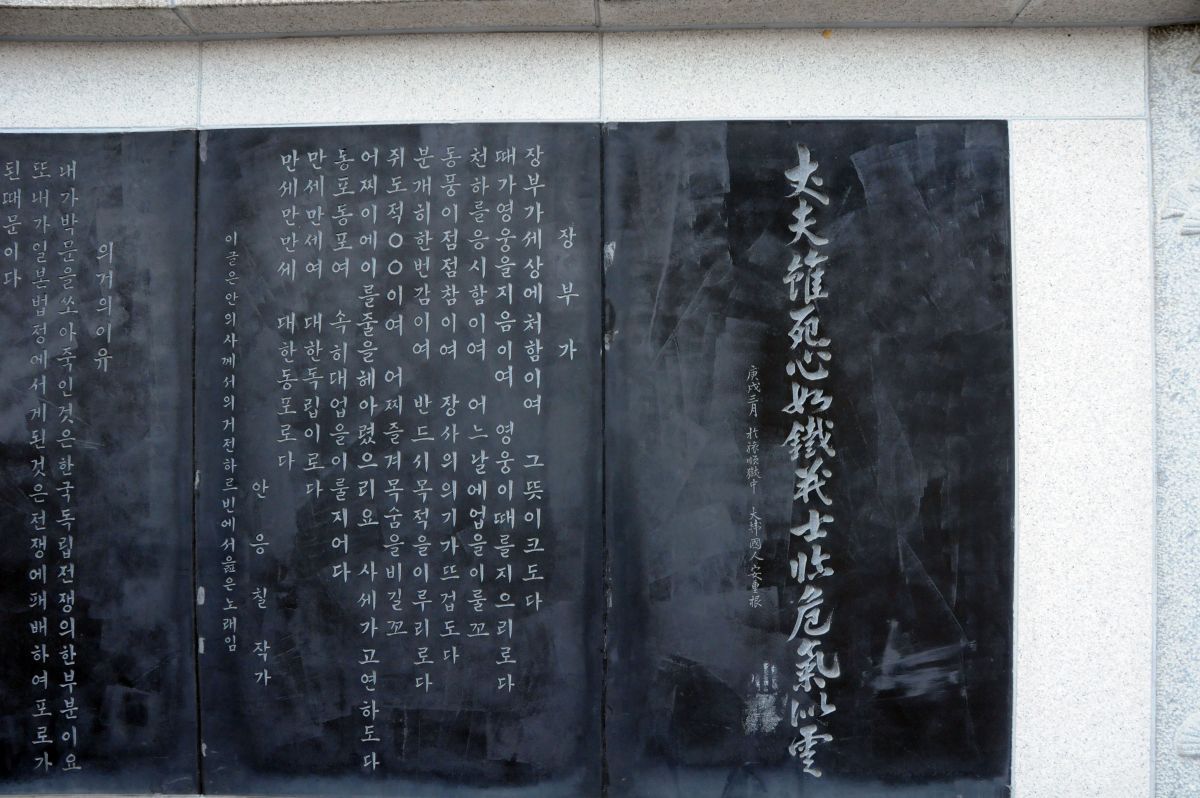 丈夫雖死心如鐵義士臨危氣似雲
庚戌三月 於旅順獄中 大韓國人 安重根
장부가
장부가세상에처함이여 그뜻이크도다
때가영웅을지음이여 영웅이때를지으리로다
천하를응시함이여 어느날에업을이룰꼬
동풍이점점참이여 장사의의기가뜨겁도다
분개히한번감이여 반드시목적을이루리로다
쥐도적○○이여 어찌즐겨목숨을비길꼬
어찌이에이를줄을헤아렸으리요 사세가고연하도다
동포동포여 속히대업을이룰지어다
만세만세여 대한독립이로다
만세만만세 대한동포로다
안응칠작가
이글은안의사께서의거전하르빈에서읊은노래임
의거의이유
내가박문을쏘아죽인것은한국독립전쟁의한부분이요
또내가일본법정에서게된것은전쟁에패배하여포로가
된때문이다